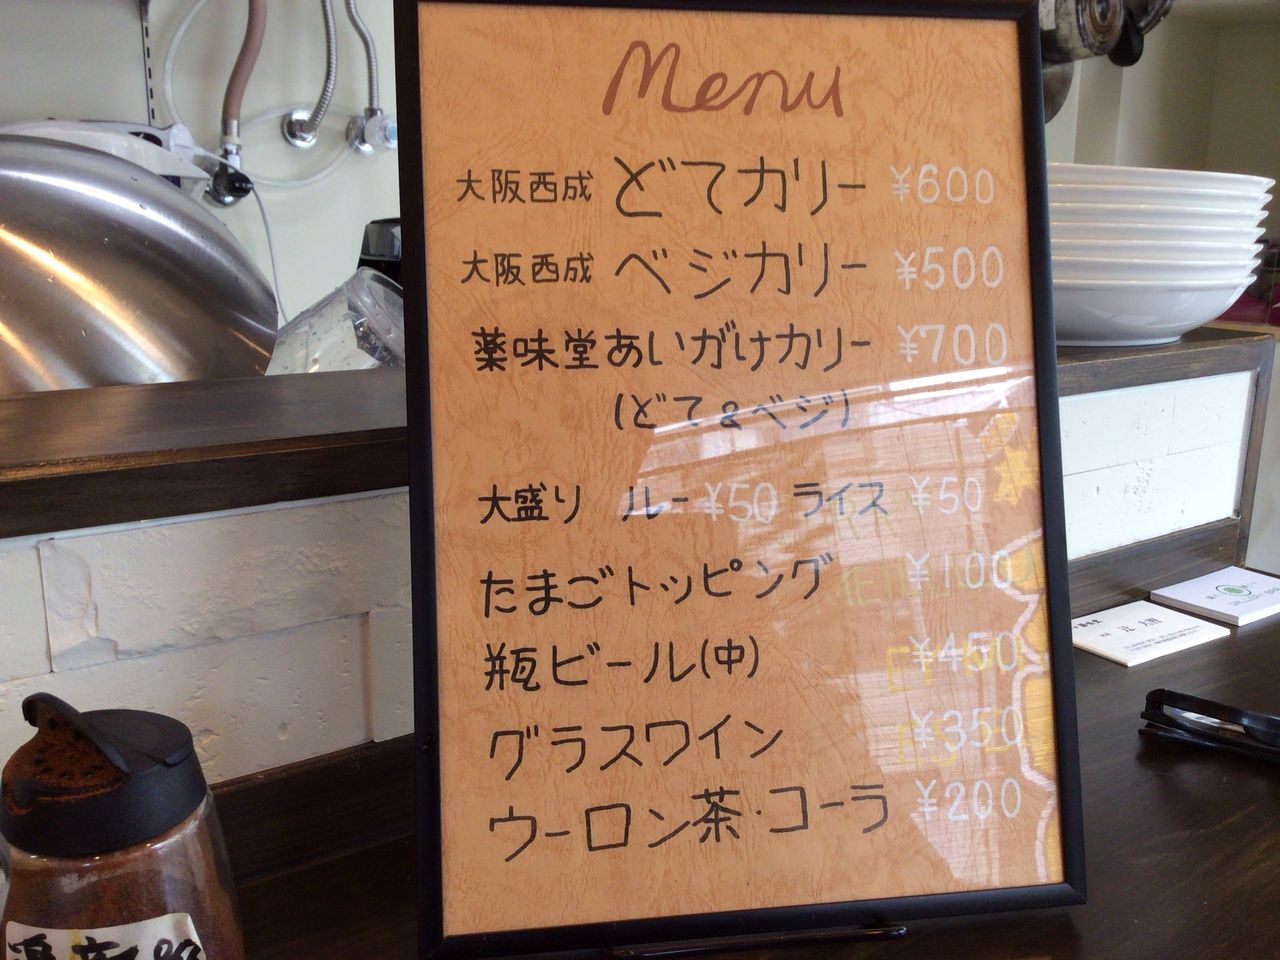 Menu
大阪西成 どてカリー ¥600
大阪西成 ベジカリー ¥500
薬味堂あいがけカリー ¥700
(どて&ベジ)
大盛り ルー ¥50 ライス ¥50
たまごトッピング ¥100
瓶ビール(中) ¥450
グラスワイン ¥350
ウーロン茶・コーラ ¥200